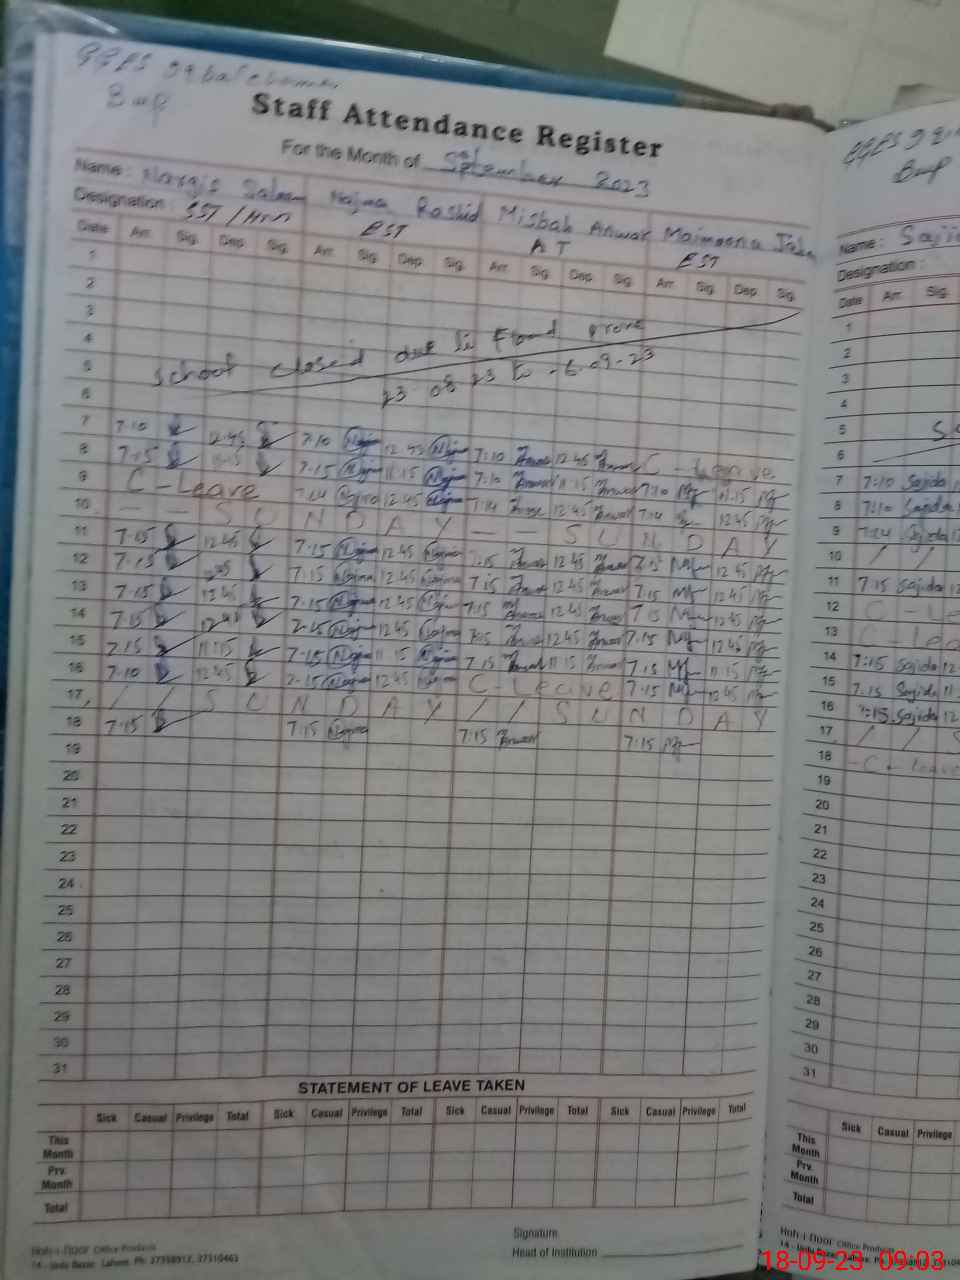 GGES
Bwp
Staff Attendance Register
For the Month of September 2023
Name : Nargis Salam Najma Rashid Misbah Anwar Maimoona
Designation : SST / Hm EST AT EST
Date Arr. Sig. Dep. Sig. Arr. Sig. Dep. Sig. Arr. Sig. Dep. Sig. Arr. Sig. Dep. Sig.
1
2
3
4
5
6
school closed due
23 08 23 to -6-09-23
7 7:10 12:45 7:10 Najma 12:45 Najma 7:10 Anwar 12:45 Anwar C - Leave
8 7:15 11:15 7:15 Najma 11:15 Najma 7:10 Anwar 11:15 Anwar 7:10 11:15
9 C-Leave 7:14 Najma 12:45 Najma 7:14 Anwar 12:45 Anwar 7:14 12:45
10 - - S U N D A Y - - S U N D A Y
11 7:15 12 45 7:15 Najma 12 45 Najma 7:15 Anwar 12 45 Anwar 7:15 12 45
12 7:15 7:15 Najma 12 45 Najma 7:15 Anwar 12 45 Anwar 7:15 12 45
13 7:15 12 45 7:15 Najma 12 45 Najma 7:15 Anwar 12 45 Anwar 7:15 12 45
14 7:15 7:15 Najma 12 45 Najma 7:15 Anwar 12 45 Anwar 7:15 12 45
15 7:15 11:15 7:15 Najma 11 15 Najma 7:15 Anwar 11 15 Anwar 7:15 11:15
16 7:10 12 45 7:15 Najma 12 45 Najma C-Leave 7:15 12 45
17 / / S U N D A Y / / S U N D A Y
18 7:15 7:15 Najma 7:15 Anwar 7:15
19
20
21
22
23
24
25
26
27
28
29
30
31
STATEMENT OF LEAVE TAKEN
Sick Casual Privilege Total Sick Casual Privilege Total Sick Casual Privilege Total Sick Casual Privilege Total
This Month
Prv. Month
Total
Signature
Head of Institution
Office Products
14 - Urdu Bazar, Lahore. Ph: 37358912, 37310463
GGES
Bwp
Name :
Designation :
Date Arr. Sig.
1
2
3
4
5
6
7 7:10 Sajida
8 7:10 Sajida
9 7:14 Sajida
10 / /
11 7:15 Sajida
12 C - Le
13 C - Lea
14 7:15 Sajida 12
15 7:15 Sajida 11
16 7:15 Sajida 12
17 / /
18 -C- Leave
19
20
21
22
23
24
25
26
27
28
29
30
31
Sick Casual Privilege
This Month
Prv. Month
Total
Office Products
18-09-23 09:03